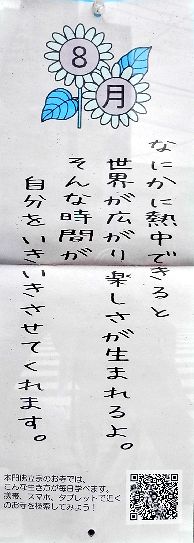 8月
なにかに熱中できると
世界が広がり楽しさが生まれるよ。
そんな時間が
自分をいきいきさせてくれます。
本門佛立宗のお寺では、
こんな生き方が毎日学べます。
携帯、スマホ、タブレットで近く
のお寺を検索してみよう！